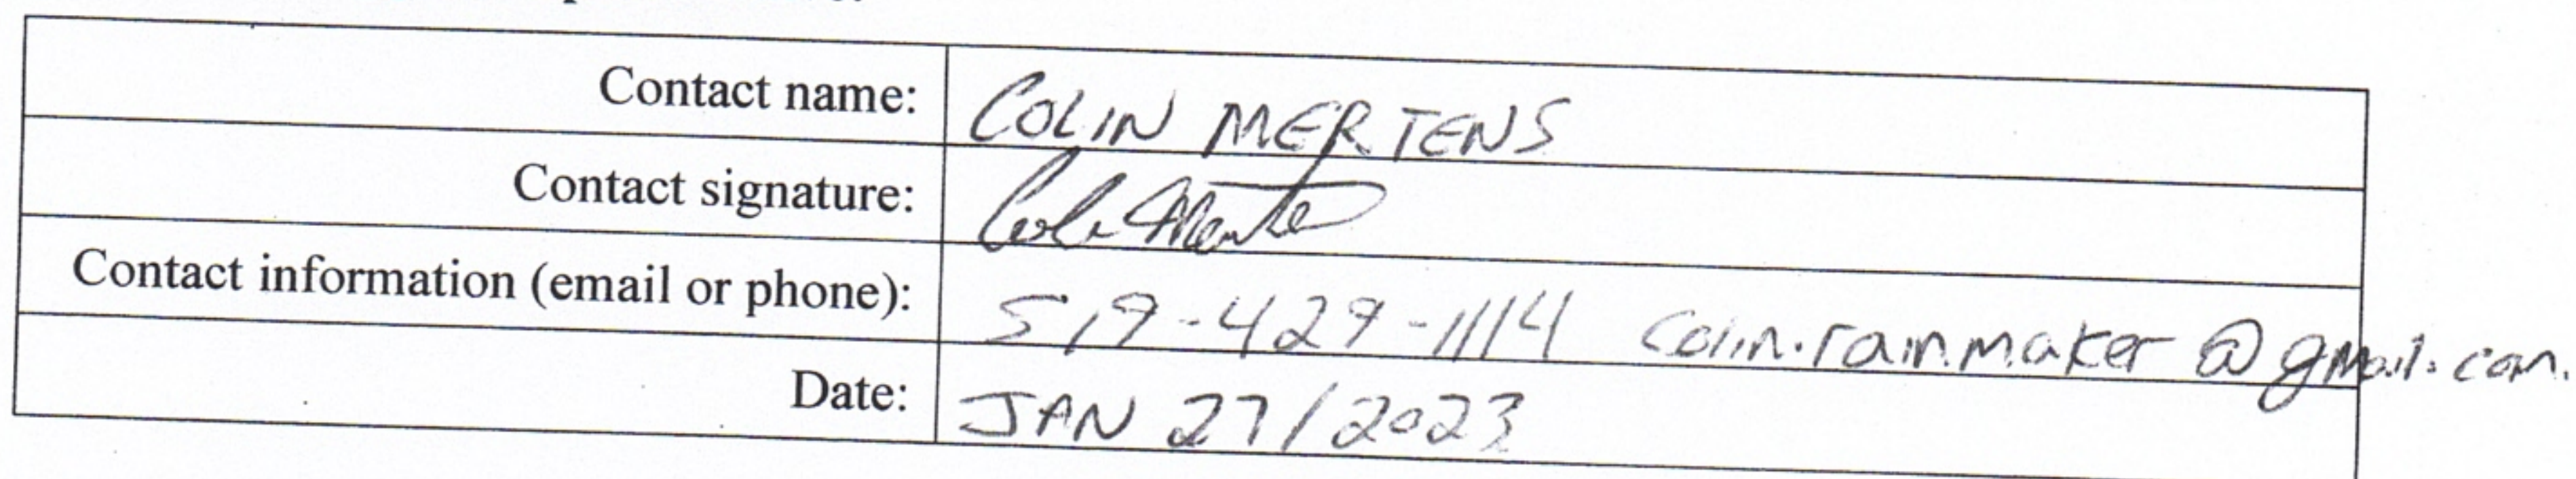 Contact name: COLIN MERTENS
Contact signature: Colin Mertens
Contact information (email or phone): 519-429-1114 colin.rainmaker@gmail.com
Date: JAN 27/2023